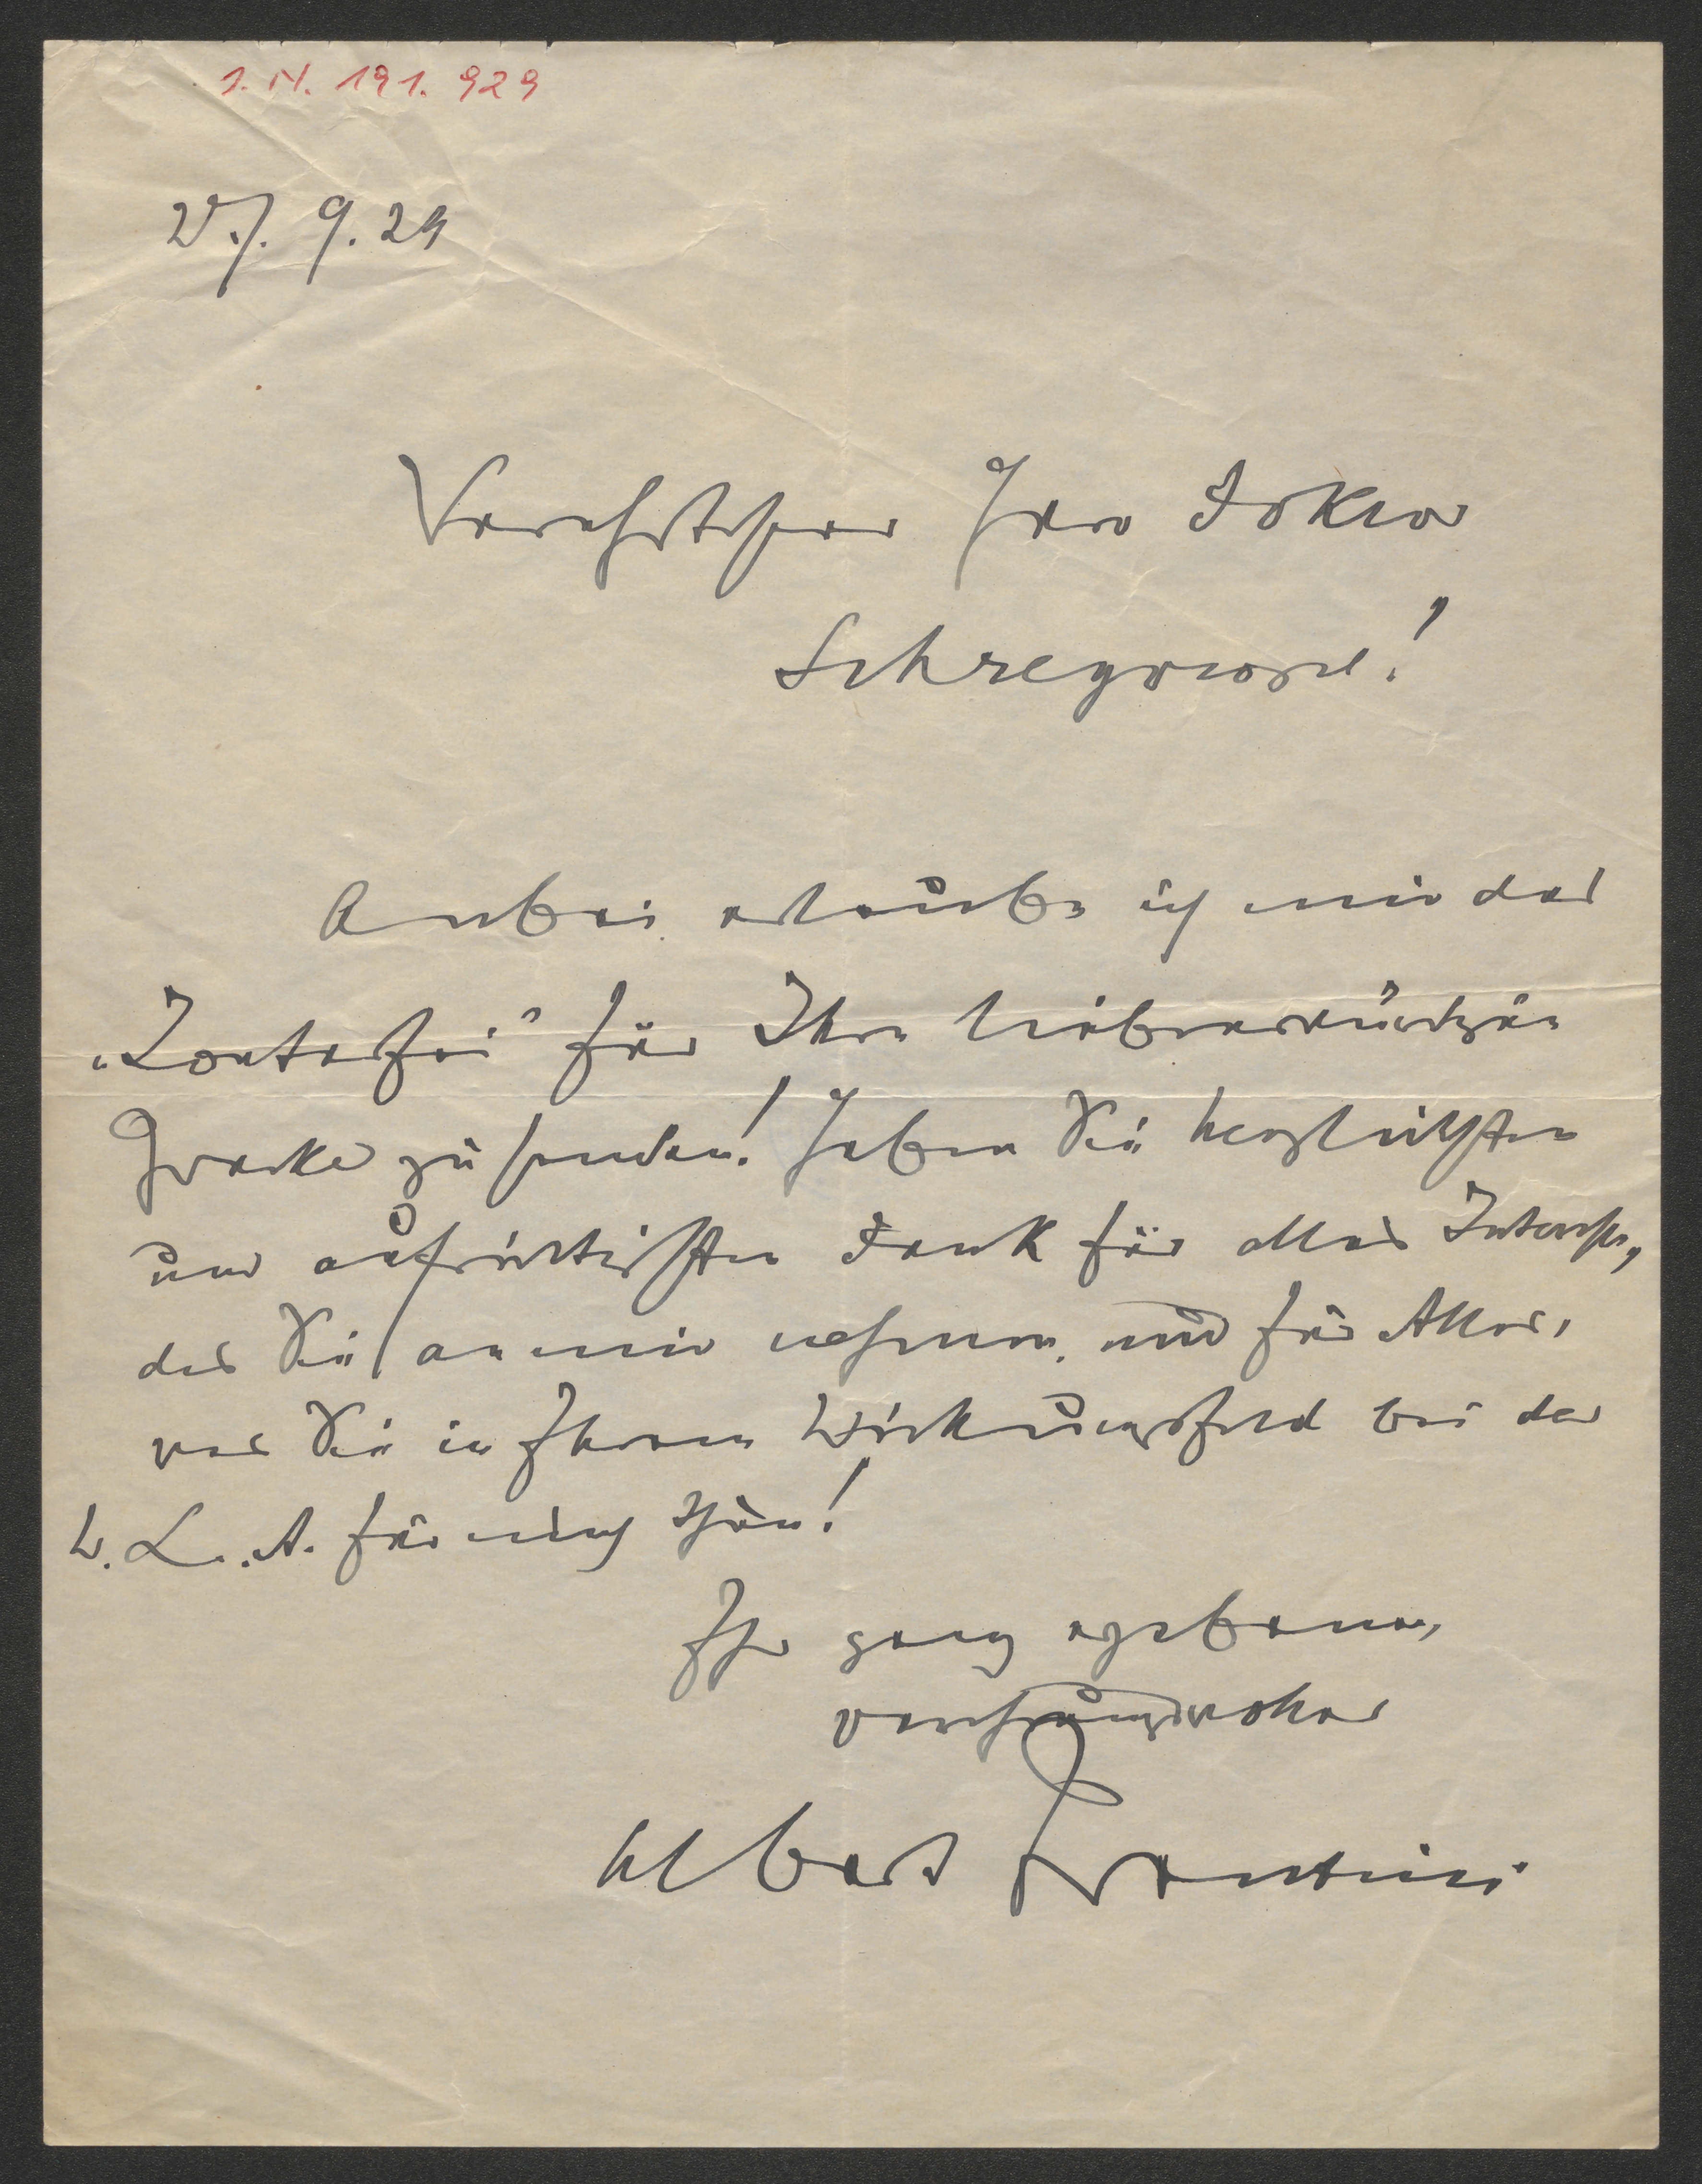 I. N. 191. 929
27. 9. 29
Verehrtester Herr Doktor
Anbei erlaube ich mir das
„Konterfei" für Ihre liebenswürdigen
Zwecke zu senden! Haben Sie herzlichsten
und aufrichtigsten Dank für alles Interesse,
das Sie an mir nehmen und für Alles,
was Sie in Ihrem Wirkungsfeld bei der
L. A. für mich thun!
Ihr ganz ergebener,
verehrungsvoller
Albert